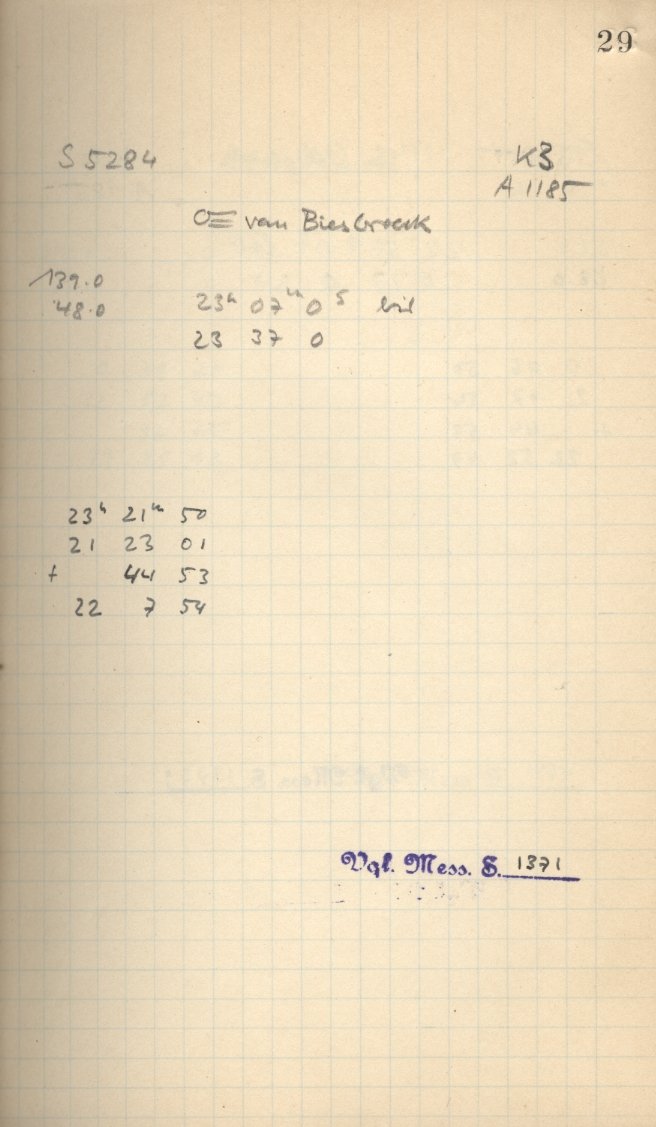 29
S 5284
K3
A 1185
☄ van Biesbroeck
139.0
48.0
23h 07m 0s bis
23 37 0
23h 21m 50
21 23 01
+ 44 53
22 7 54
Vgl. Mess. S. 1371